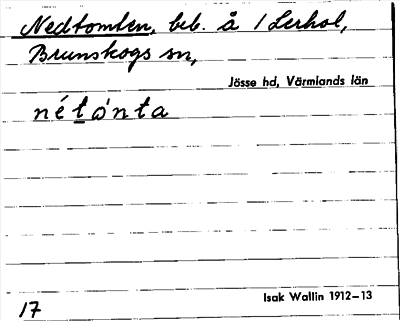 Nedtomten, beb. å 1 Lerhol,
Brunskogs sn,
Jösse hd, Värmlands län
nétånta
Isak Wallin 1912–13
17